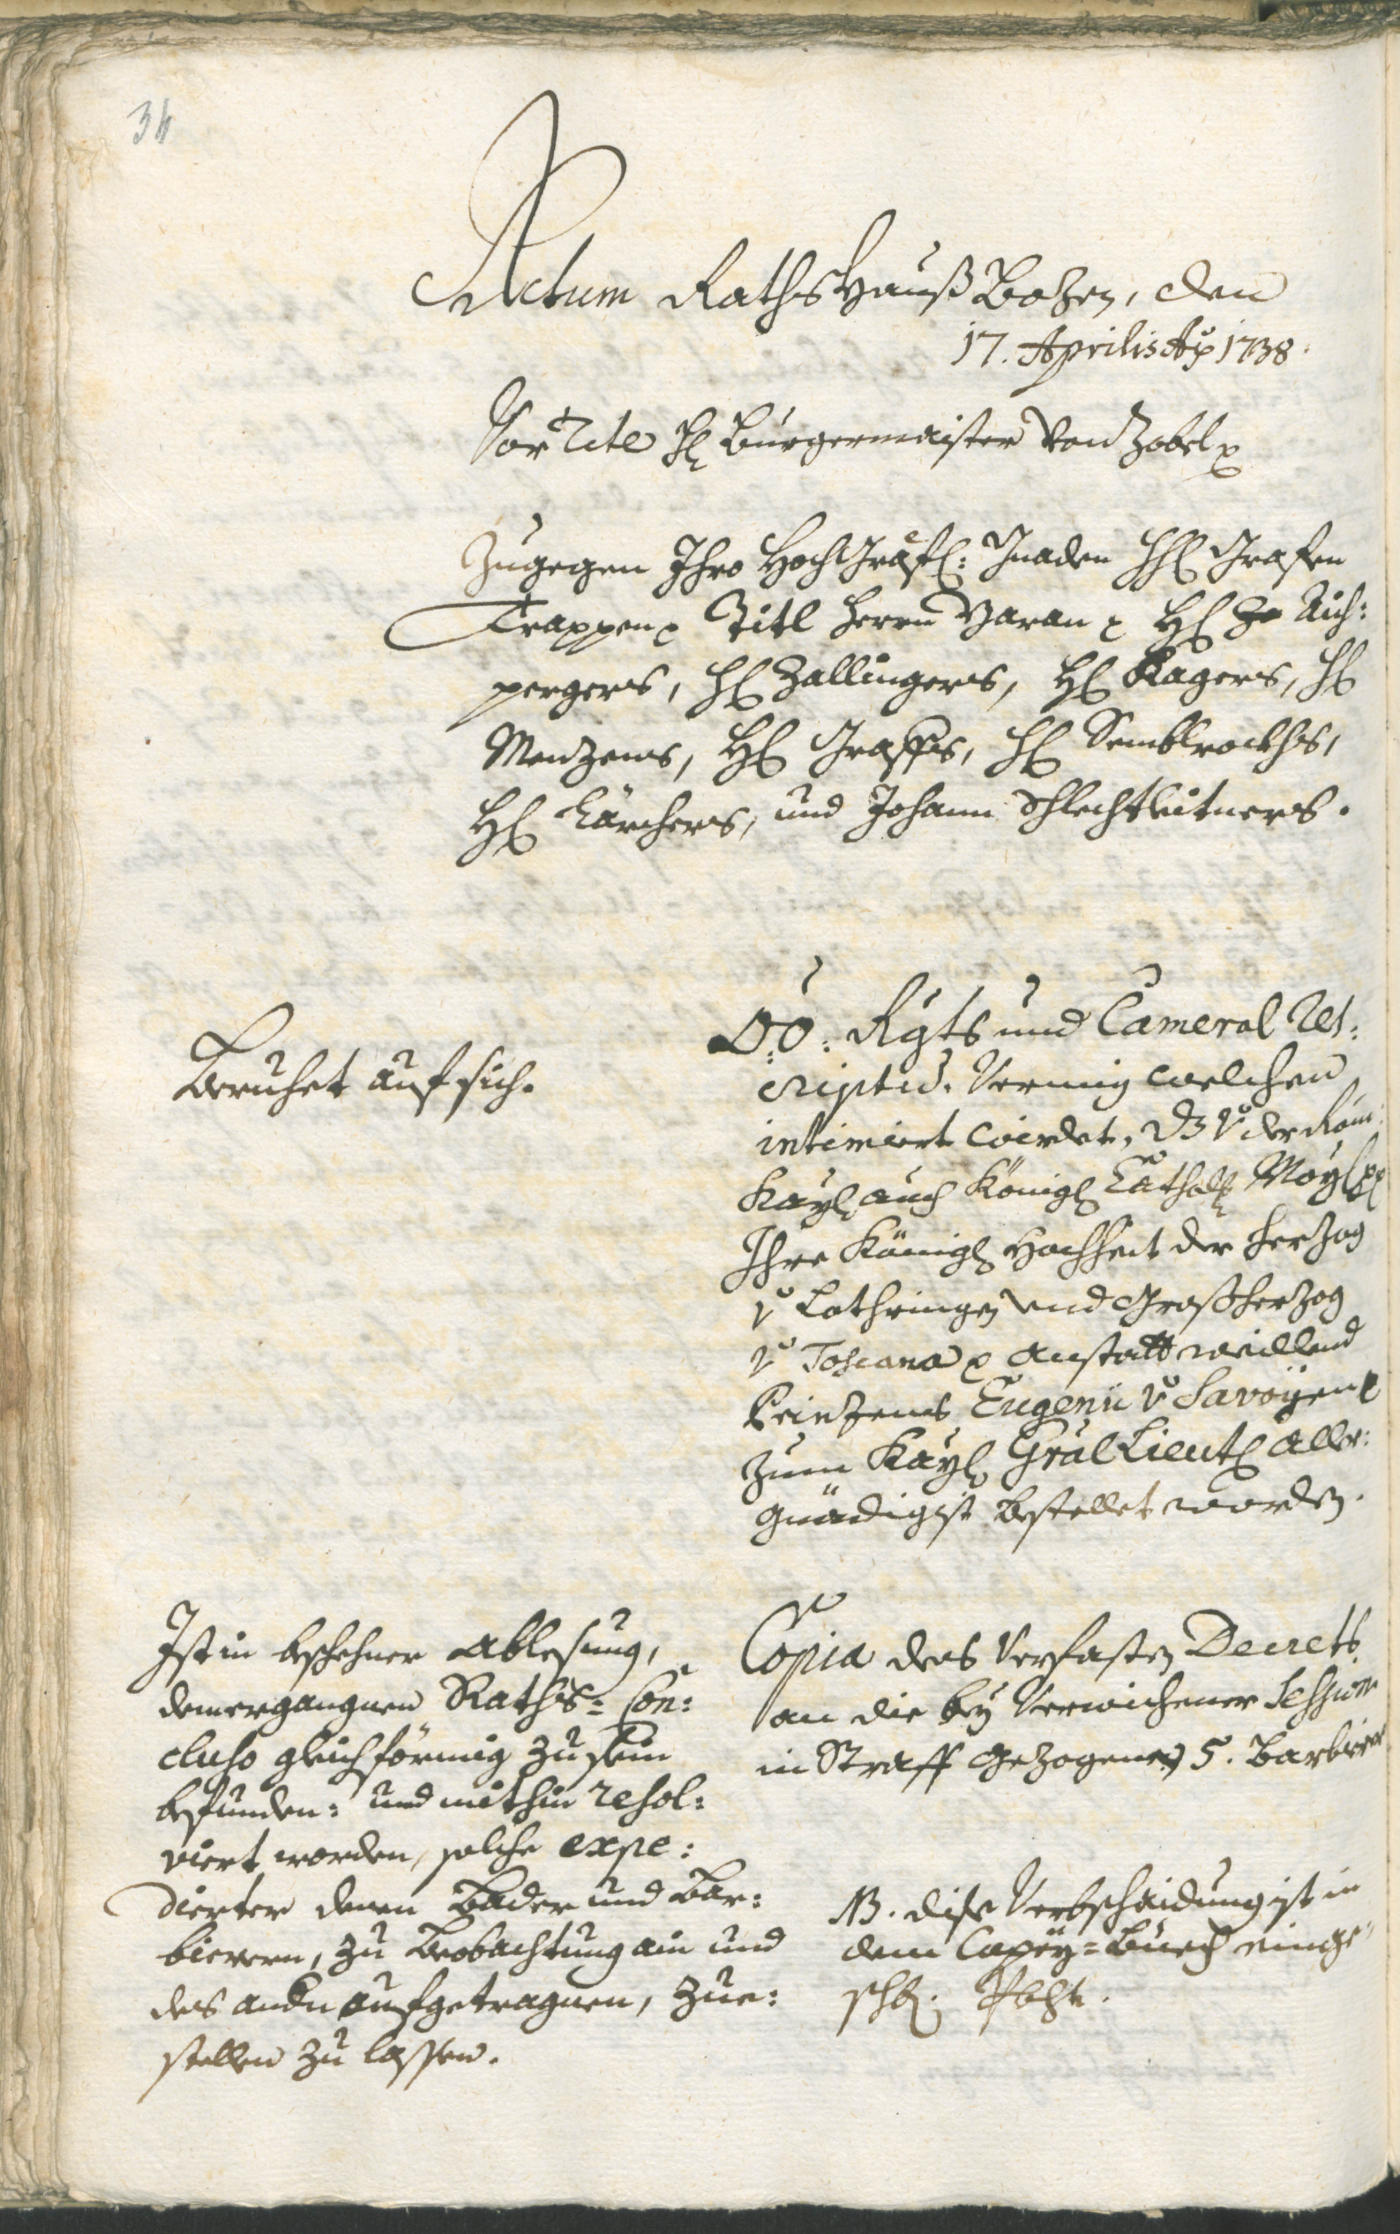 34
Actum RathsHauß Bozen, den
17. Aprilis Ao 1738.
Vor Titl H Burgermaister von Zobel
Zugegen Ihro Hochgräfl: Gnaden HH Grafen
Trappen Titl Herrn Haran H Aich:
pergers, H Zallingers, H Kagers, H
Menzens, H Grasses, H Semblrockhs,
H Lärchers, und Johann Schlechtleitners.
Beruhet auf sich.
O:Ö: Rgts und Cameral Res:
criptum. Vermig welchen
intimiert wierdet, dz v der Röm:
Kayl auch Königl Cathol May
Ihre Königl Hochheit der Herzog
v Lothringen und Großherzog
v Toscana anstatt weillend
Prinzens Eugenii v Savoyen
zum Kayl Gral Lieut aller:
gnädigist bestellet worden.
Ist in beschehner Ablesung,
dem ergangnen Raths=Con:
cluso gleichförmig zu sein
befunden: und mithin resol:
viert worden, solche expe:
dierter denen Bader und Bar:
bierern, zu Beobachtung ain und
des andn aufgetragnen, zue:
stellen zu lassen.
Copia des verfasten Decrets
an die bey verwichener Session
in Straff gezogenen 5. Barbierer
NB. dise Verbschaidung ist in
dem Copey=Buech einge
schb.